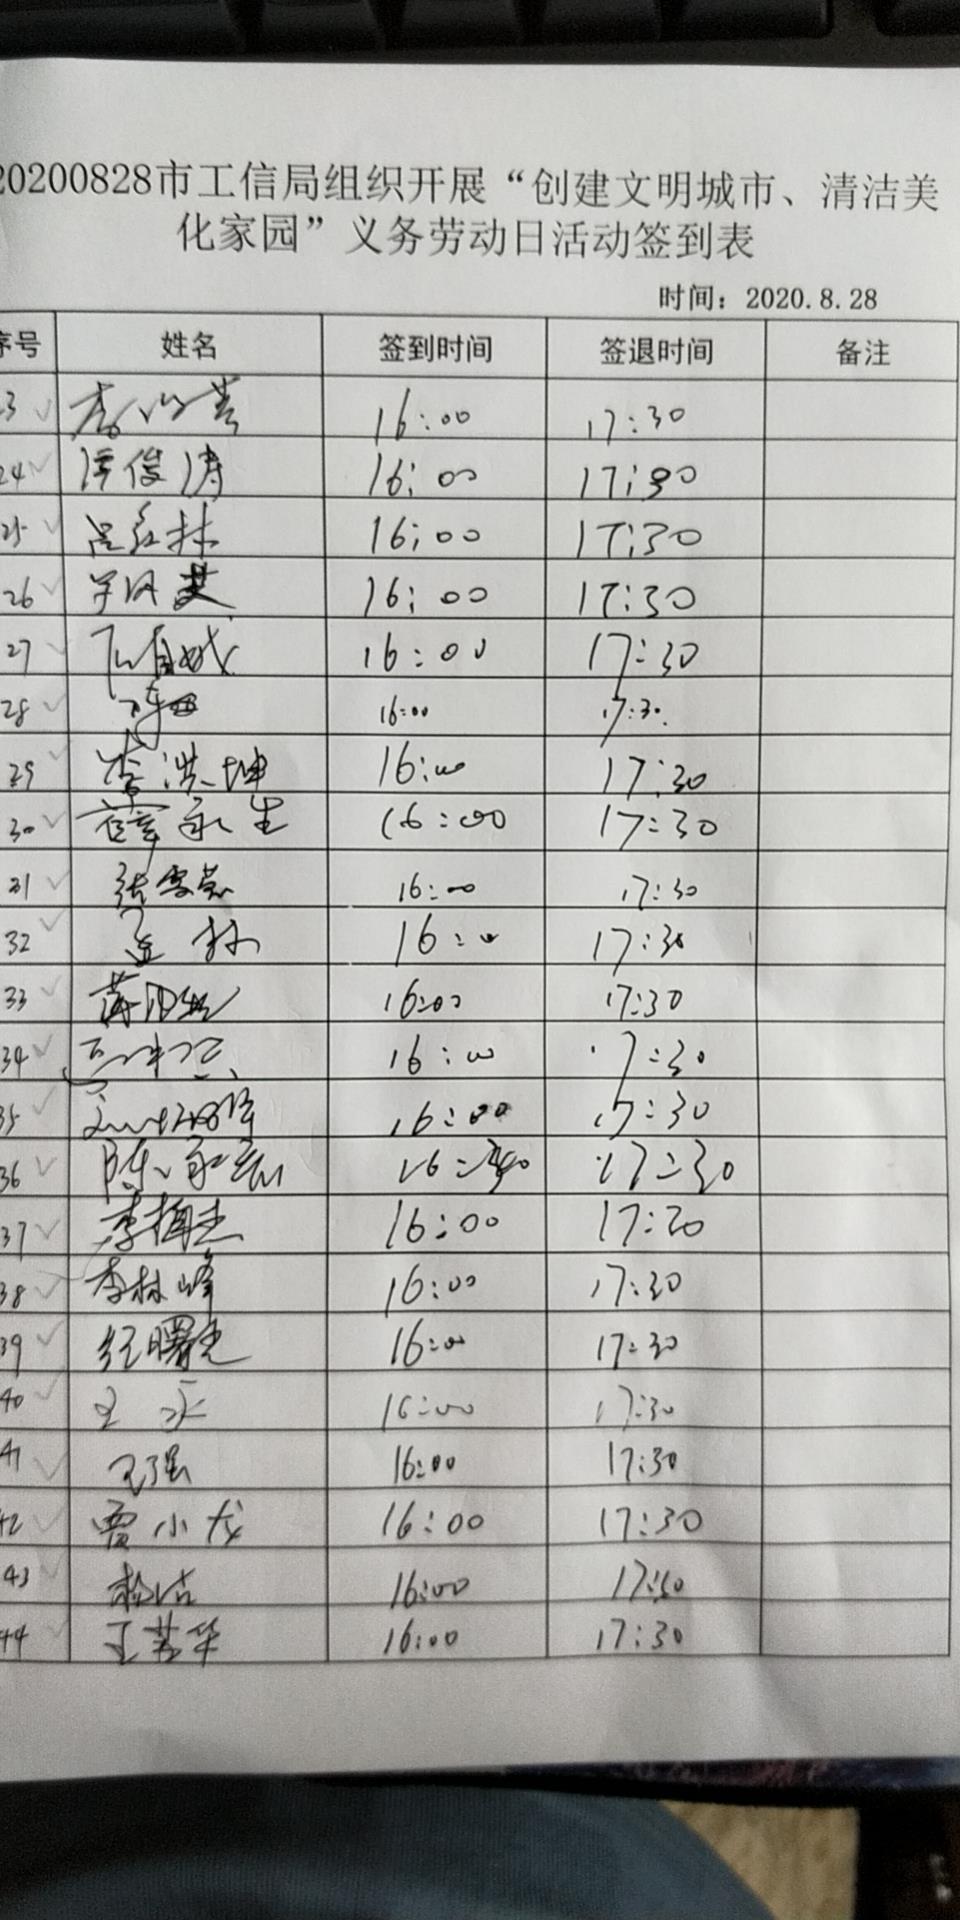 20200828市工信局组织开展“创建文明城市、清洁美
化家园”义务劳动日活动签到表
时间：2020.8.28
序号 姓名 签到时间 签退时间 备注
23 16:00 17:30
24 谭俊涛 16:00 17:30
25 吕红林 16:00 17:30
26 16:00 17:30
27 16:00 17:30
28 16:00 17:30
29 李洪坤 16:00 17:30
30 薛永生 16:00 17:30
31 张雪莹 16:00 17:30
32 孟林 16:00 17:30
33 16:00 17:30
34 16:00 17:30
35 16:00 17:30
36 陈永宏 16:00 17:30
37 16:00 17:20
38 李林峰 16:00 17:30
39 纪曙光 16:00 17:30
40 王永 16:00 17:30
41 王强 16:00 17:30
42 贾小龙 16:00 17:30
43 16:00 17:30
44 王芳华 16:00 17:30